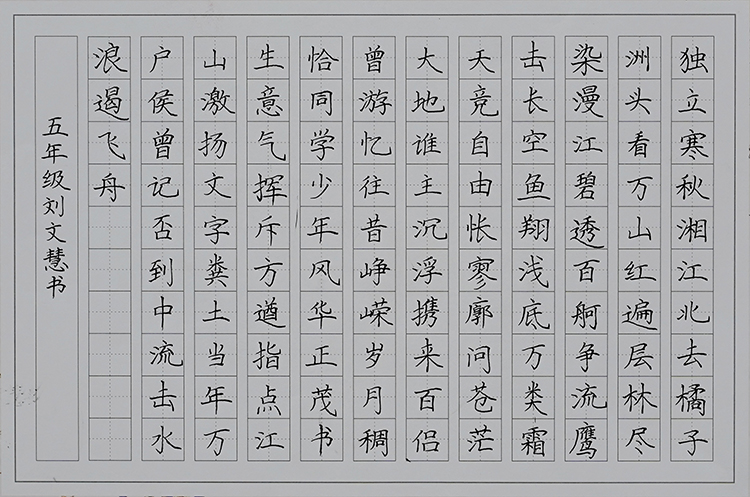 独立寒秋湘江北去橘子
洲头看万山红遍层林尽
染漫江碧透百舸争流鹰
击长空鱼翔浅底万类霜
天竞自由怅寥廓问苍茫
大地谁主沉浮携来百侣
曾游忆往昔峥嵘岁月稠
恰同学少年风华正茂书
生意气挥斥方遒指点江
山激扬文字粪土当年万
户侯曾记否到中流击水
浪遏飞舟
五年级刘文慧书